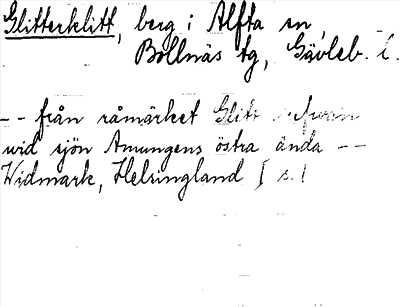 Glitterklitt, berg i Alfta sn,
Bollnäs tg, Gävleb. l.
-- från råmärket
wid sjön Amungens östra ända --
Widmark, Helsingland I s. 1